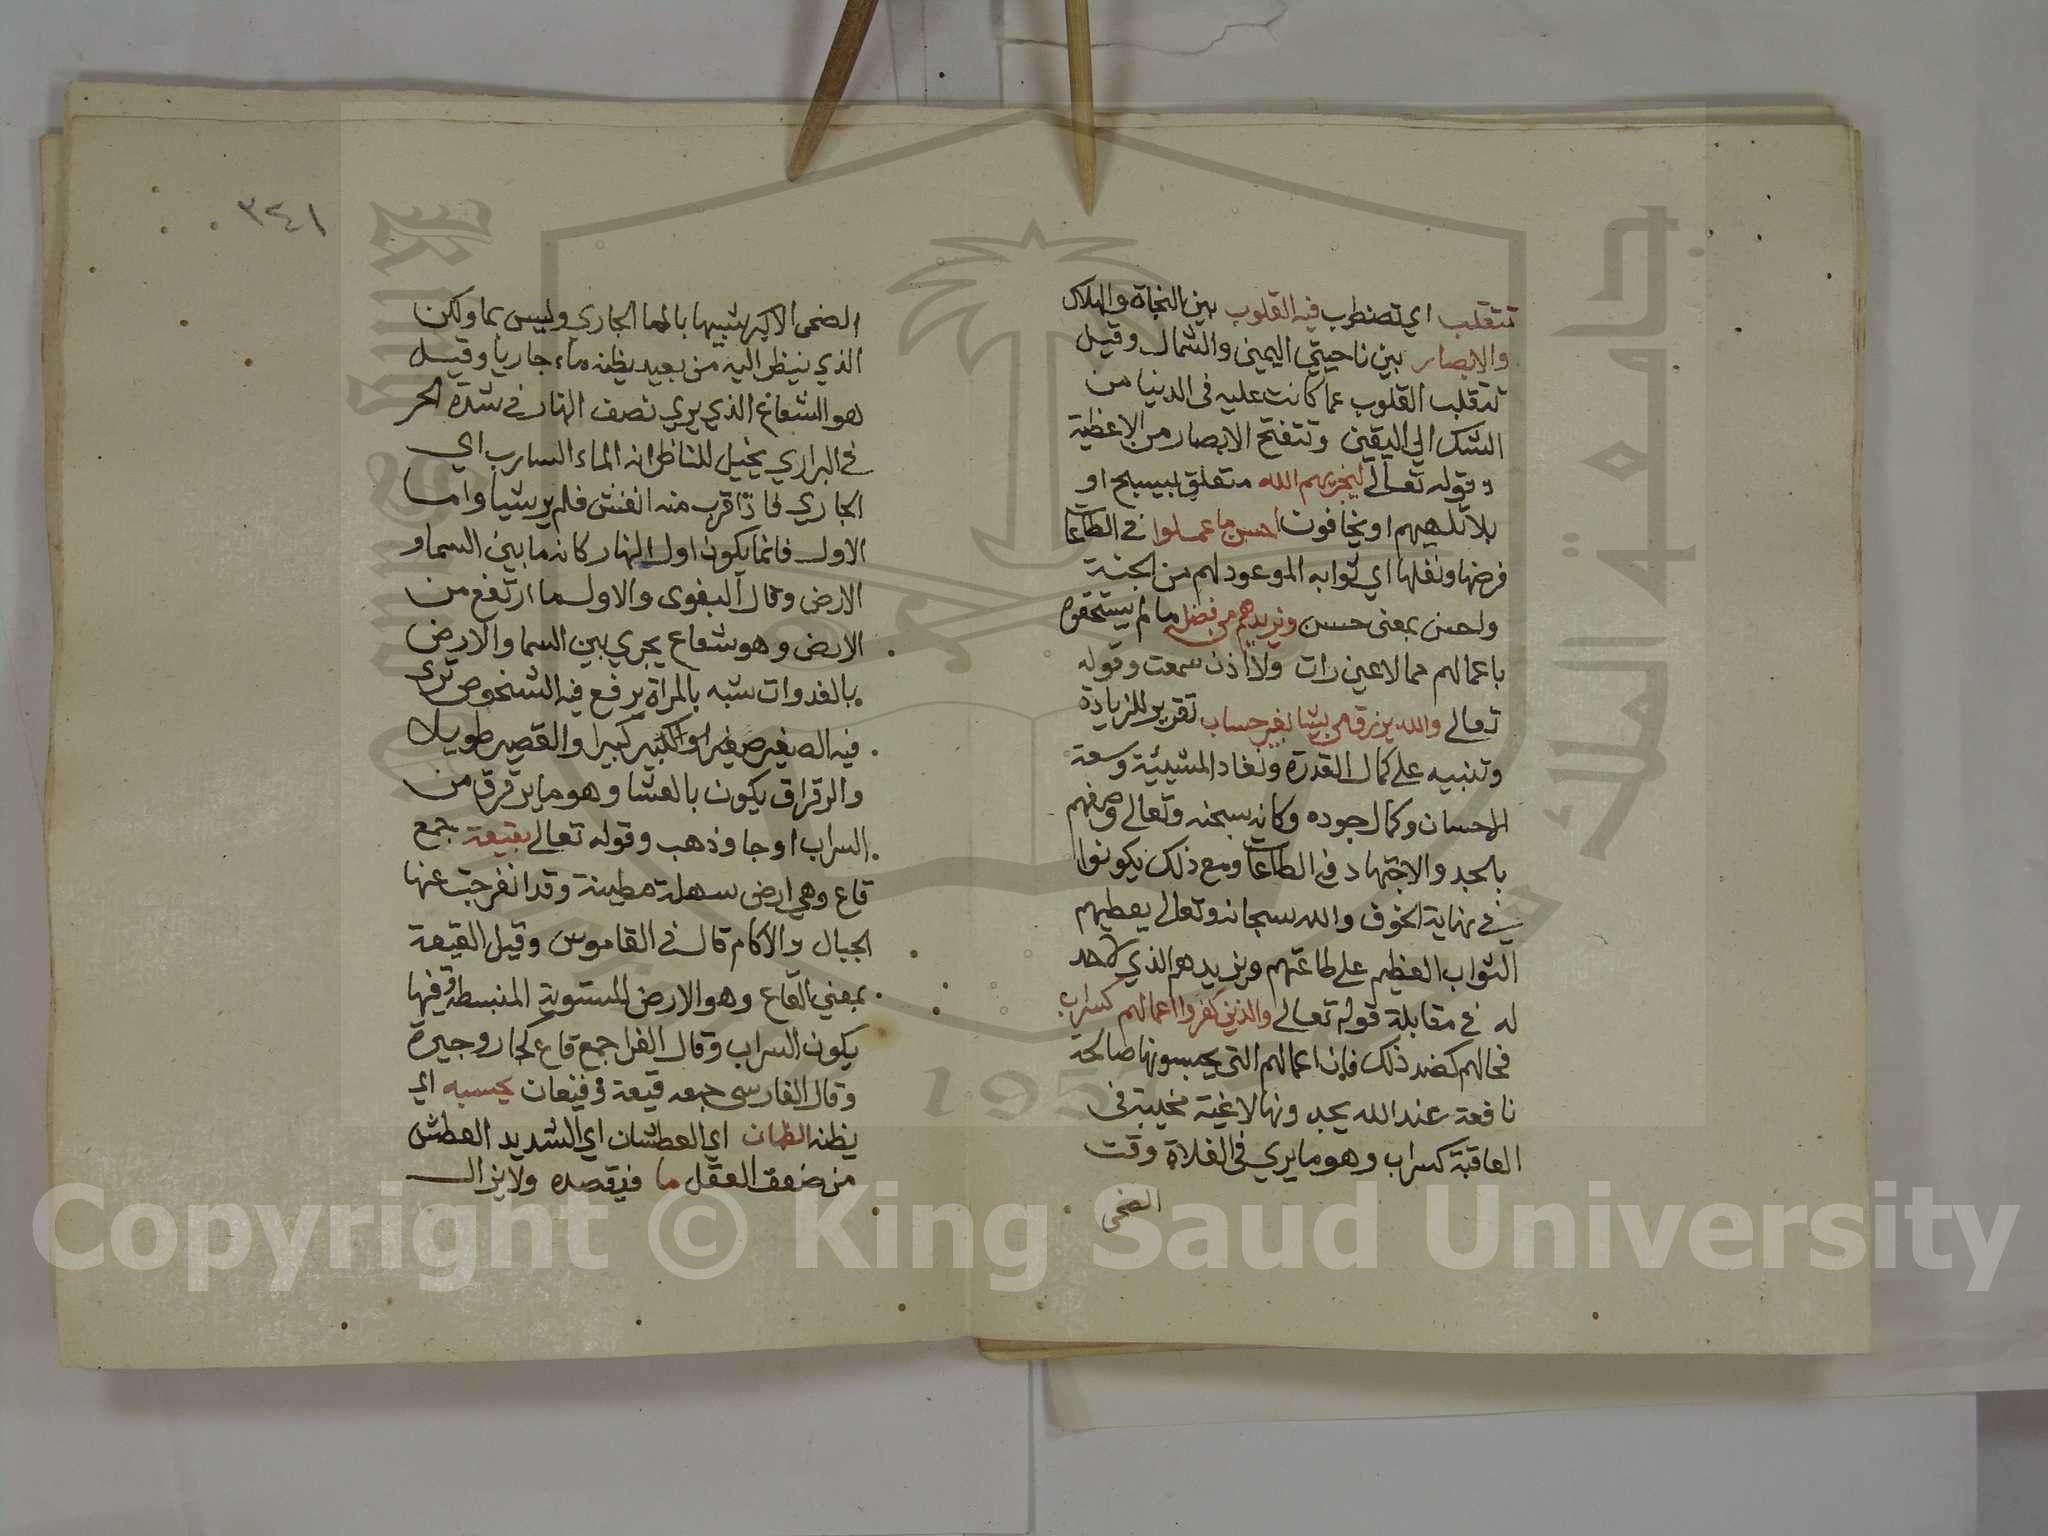 تتقلب اي تضطرب فيه القلوب بين النجاة والهلاك
والابصار بين ناحيتي اليمين والشمال وقيل
تتقلب القلوب عما كانت عليه في الدنيا من
الشك الي اليقين وتتفتح الابصار من الاغطية
وقوله تعالي ليجزيهم الله متعلق بيسبح او
بلا تلهيهم او يخافون احسن ما عملوا في الطاعا
فرضها ونفلها اي ثوابه الموعود لهم من الجنة
واحسن بمعنى حسن ويزيدهم من فضله ما لم يستحقوه
باعمالهم مما لا عين رات ولا اذن سمعت وقوله
تعالي والله يرزق من يشا بغير حساب تقرير للزيادة
وتنبيه على كمال القدرة ونفاد المشيئة وسعة
الاحسان وكمال جوده وكانه سبحنه وتعالى وصفهم
بالجد والاجتهاد في الطاعات ومع ذلك يكونوا
في نهاية الخوف والله سبحانه وتعالى يعطيهم
الثواب العظيم على طاعتهم ويزيدهم الذي لا حد
له في مقابلة قوله تعالى والذين كفروا اعمالهم كسراب
فحالهم كضد ذلك فان اعمالهم التي يحسبونها صالحة
نافعة عند الله يجدونها لاغية مخيبة في
العاقبة كسراب وهو ما يري في الفلاة وقت
الضحى
٣٤١
الضحى الاكبر شبيها بالما الجاري وليس بما ولكن
الذي ينظر اليه من بعيد يظنه ماء جاريا وقيل
هو الشعاع الذي يري نصف النهار في شدة الحر
في البراري يخيل للناظر انه الماء السارب اي
الجاري فاذا قرب منه انفش فلم ير شيا واما
الاول فانما يكون اول النهار كانه ما بين السما و
الارض وقال البغوى والاول ما ارتفع من
الارض وهو شعاع يجري بين السما والارض
بالغدوات شبه بالمراة يرفع فيه الشخوص ترى
فيه الصغير صغيرا والكبير كبيرا والقصير طويلا
والرقراق يكون بالعشا وهو ما يترقرق من
السراب اوجا وذهب وقوله تعالى بقيعة جمع
قاع وهي ارض سهلة مطينة وقد انفرجت عنها
الجبال والاكام قال في القاموس وقيل القيعة
بمعني القاع وهو الارض المستوية المنبسطة وفيها
يكون السراب وقال الفرا جمع قاع كجار وجيرة
وقال الفارسى جمعه قيعة وقيعان يحسبه اي
يظنه الظمان اي العطشان اي الشديد العطش
من ضعف العقل ما فيقصده ولا يزال
Copyright © King Saud University
1957